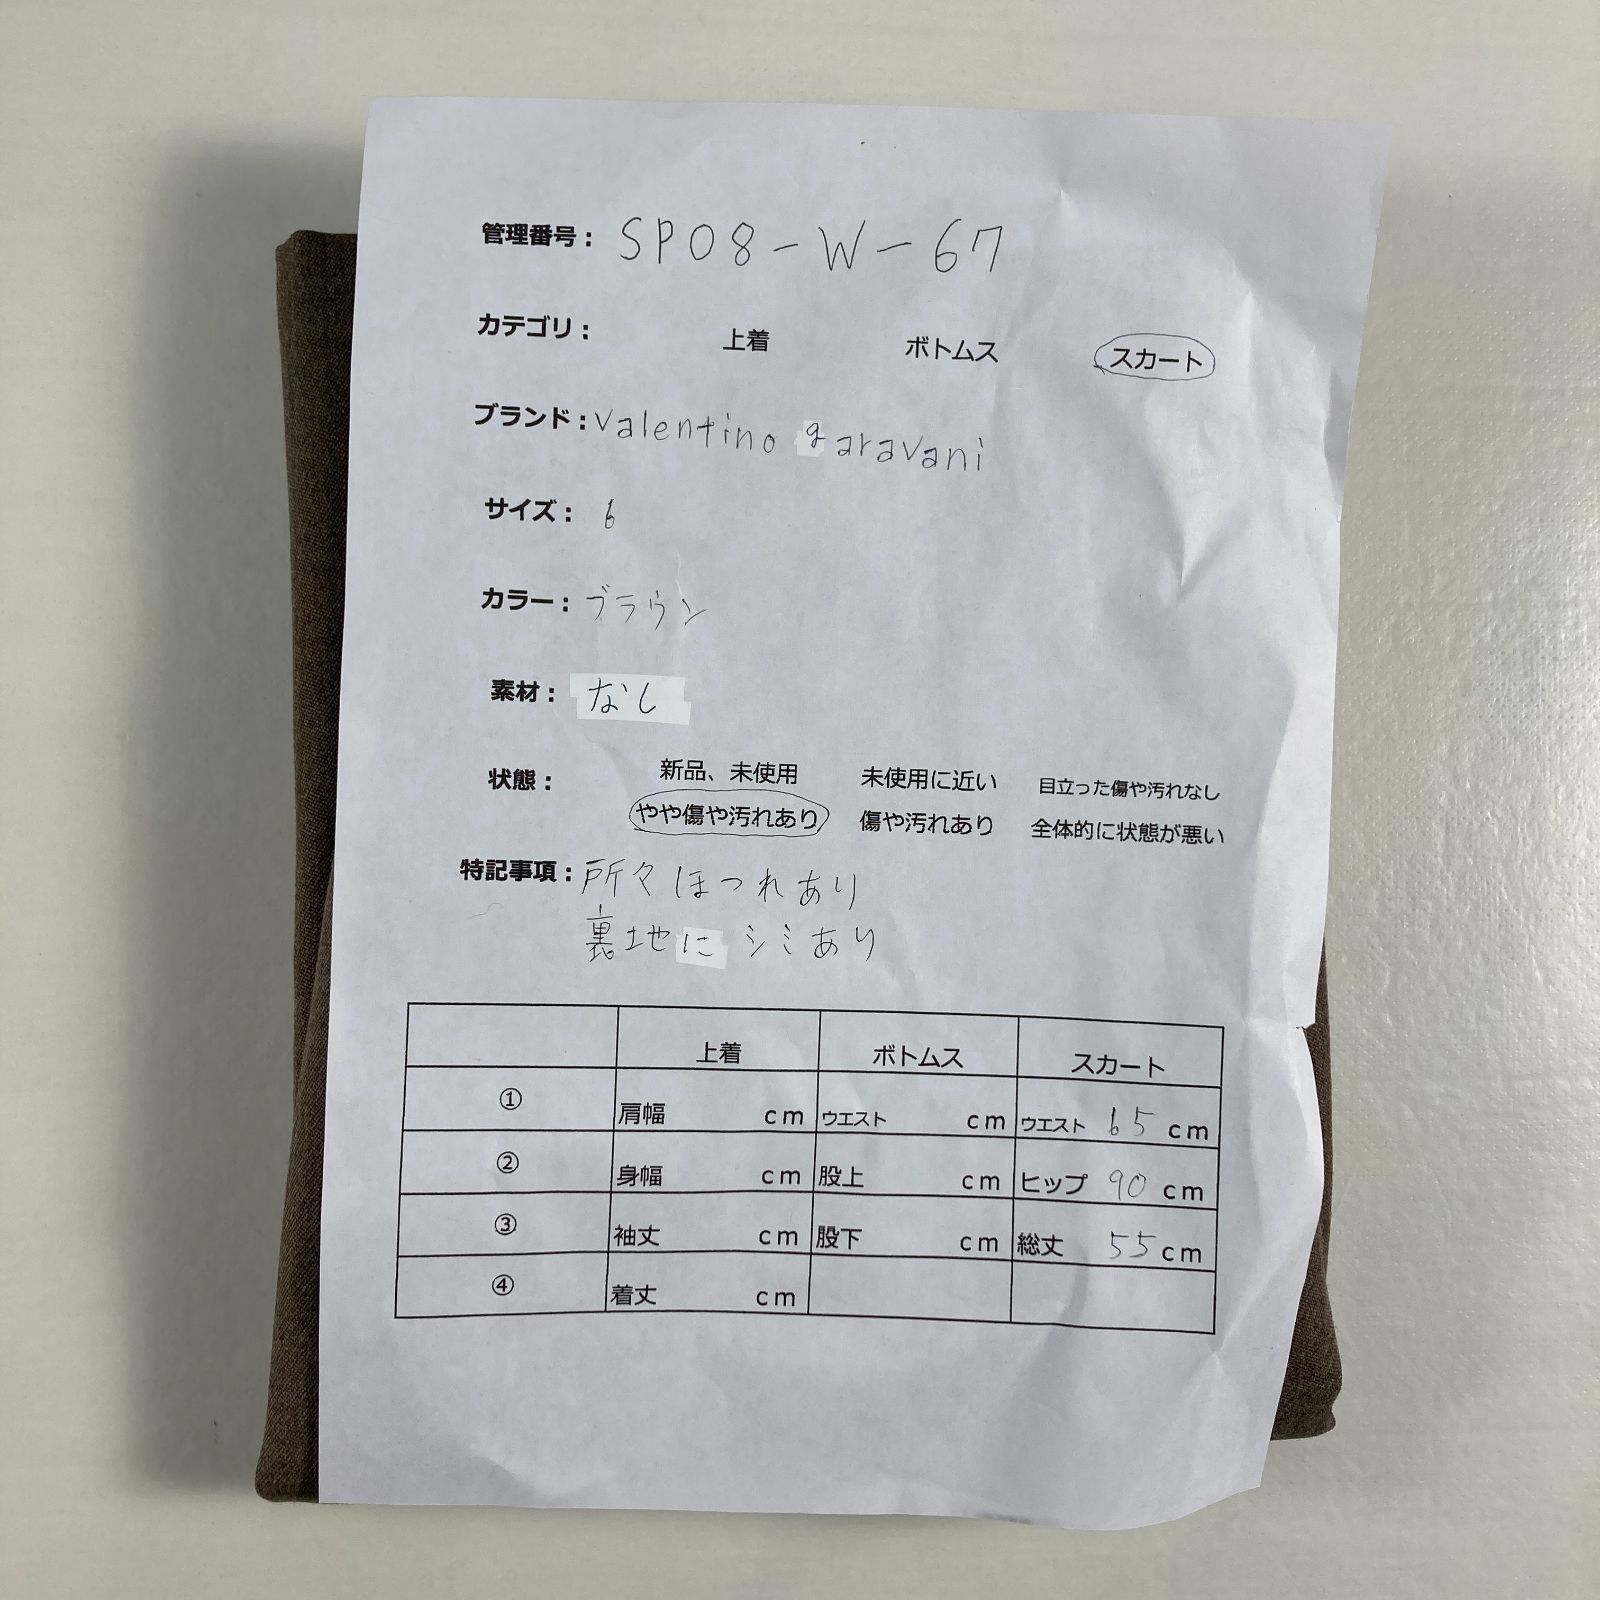 管理番号： SP08-W-67
カテゴリ： 上着 ボトムス スカート
ブランド：valentino garavani
サイズ： 6
カラー：ブラウン
素材： なし
状態： 新品、未使用 未使用に近い 目立った傷や汚れなし
やや傷や汚れあり 傷や汚れあり 全体的に状態が悪い
特記事項：所々ほつれあり
裏地にシミあり
上着 ボトムス スカート
① 肩幅 cm ウエスト cm ウエスト 65 cm
② 身幅 cm 股上 cm ヒップ 90 cm
③ 袖丈 cm 股下 cm 総丈 55 cm
④ 着丈 cm